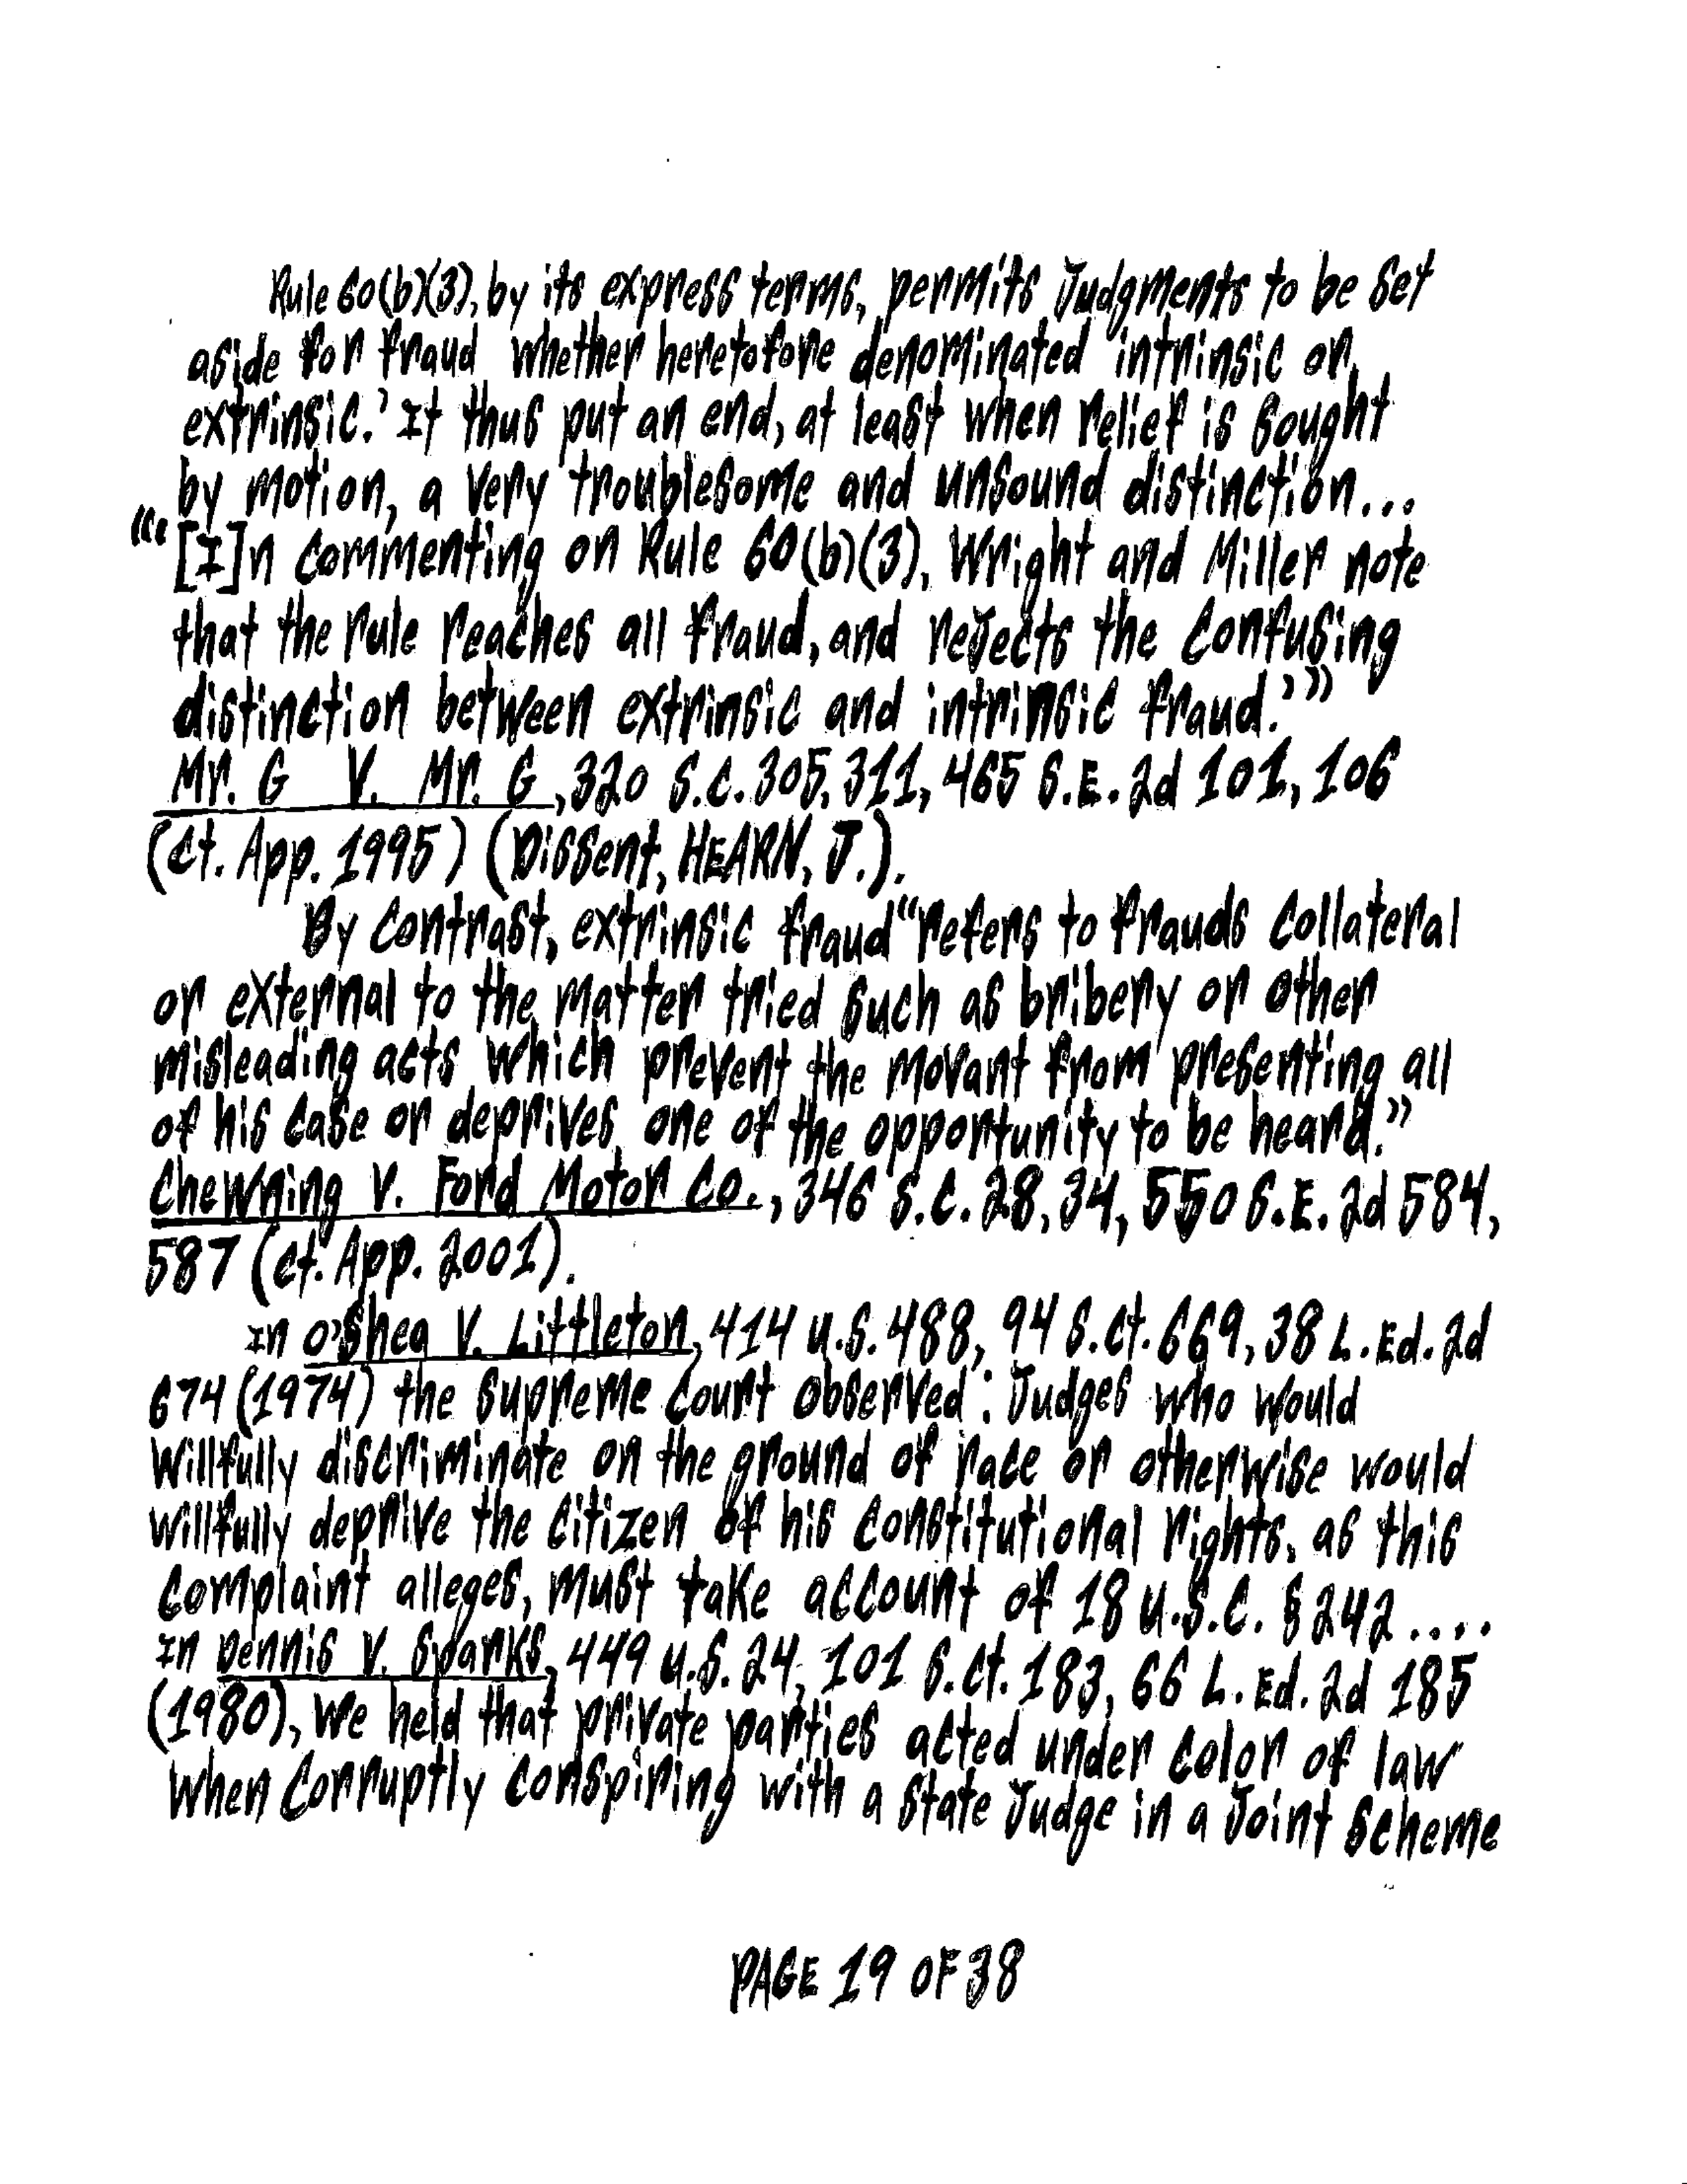 Rule 60(b)(3), by its express terms, permits Judgments to be set
aside for fraud whether heretofore denominated intrinsic or
extrinsic.' It thus put an end, at least when relief is sought
by motion, a very troublesome and unsound distinction...
"'[I]n commenting on Rule 60(b)(3), Wright and Miller note
that the rule reaches all fraud, and rejects the confusing
distinction between extrinsic and intrinsic fraud.'"
Mr. G V. Mr. G, 320 S.C. 305, 311, 465 S.E. 2d 101, 106
(Ct. App. 1995) (Dissent, HEARN, J.).
By contrast, extrinsic fraud "refers to frauds collateral
or external to the matter tried such as bribery or other
misleading acts which prevent the movant from presenting all
of his case or deprives one of the opportunity to be heard."
Chewning v. Ford Motor Co., 346 S.C. 28, 34, 550 S.E. 2d 584,
587 (Ct. App. 2001).
In O'Shea V. Littleton, 414 U.S. 488, 94 S.Ct. 669, 38 L.Ed. 2d
674 (1974) the Supreme Court observed: Judges who would
willfully discriminate on the ground of race or otherwise would
willfully deprive the citizen of his constitutional rights, as this
complaint alleges, must take account of 18 U.S.C. § 242....
In Dennis V. Sparks, 449 U.S. 24, 101 S.Ct. 183, 66 L.Ed. 2d 185
(1980), we held that private parties acted under color of law
when corruptly conspiring with a state Judge in a Joint scheme
PAGE 19 OF 38